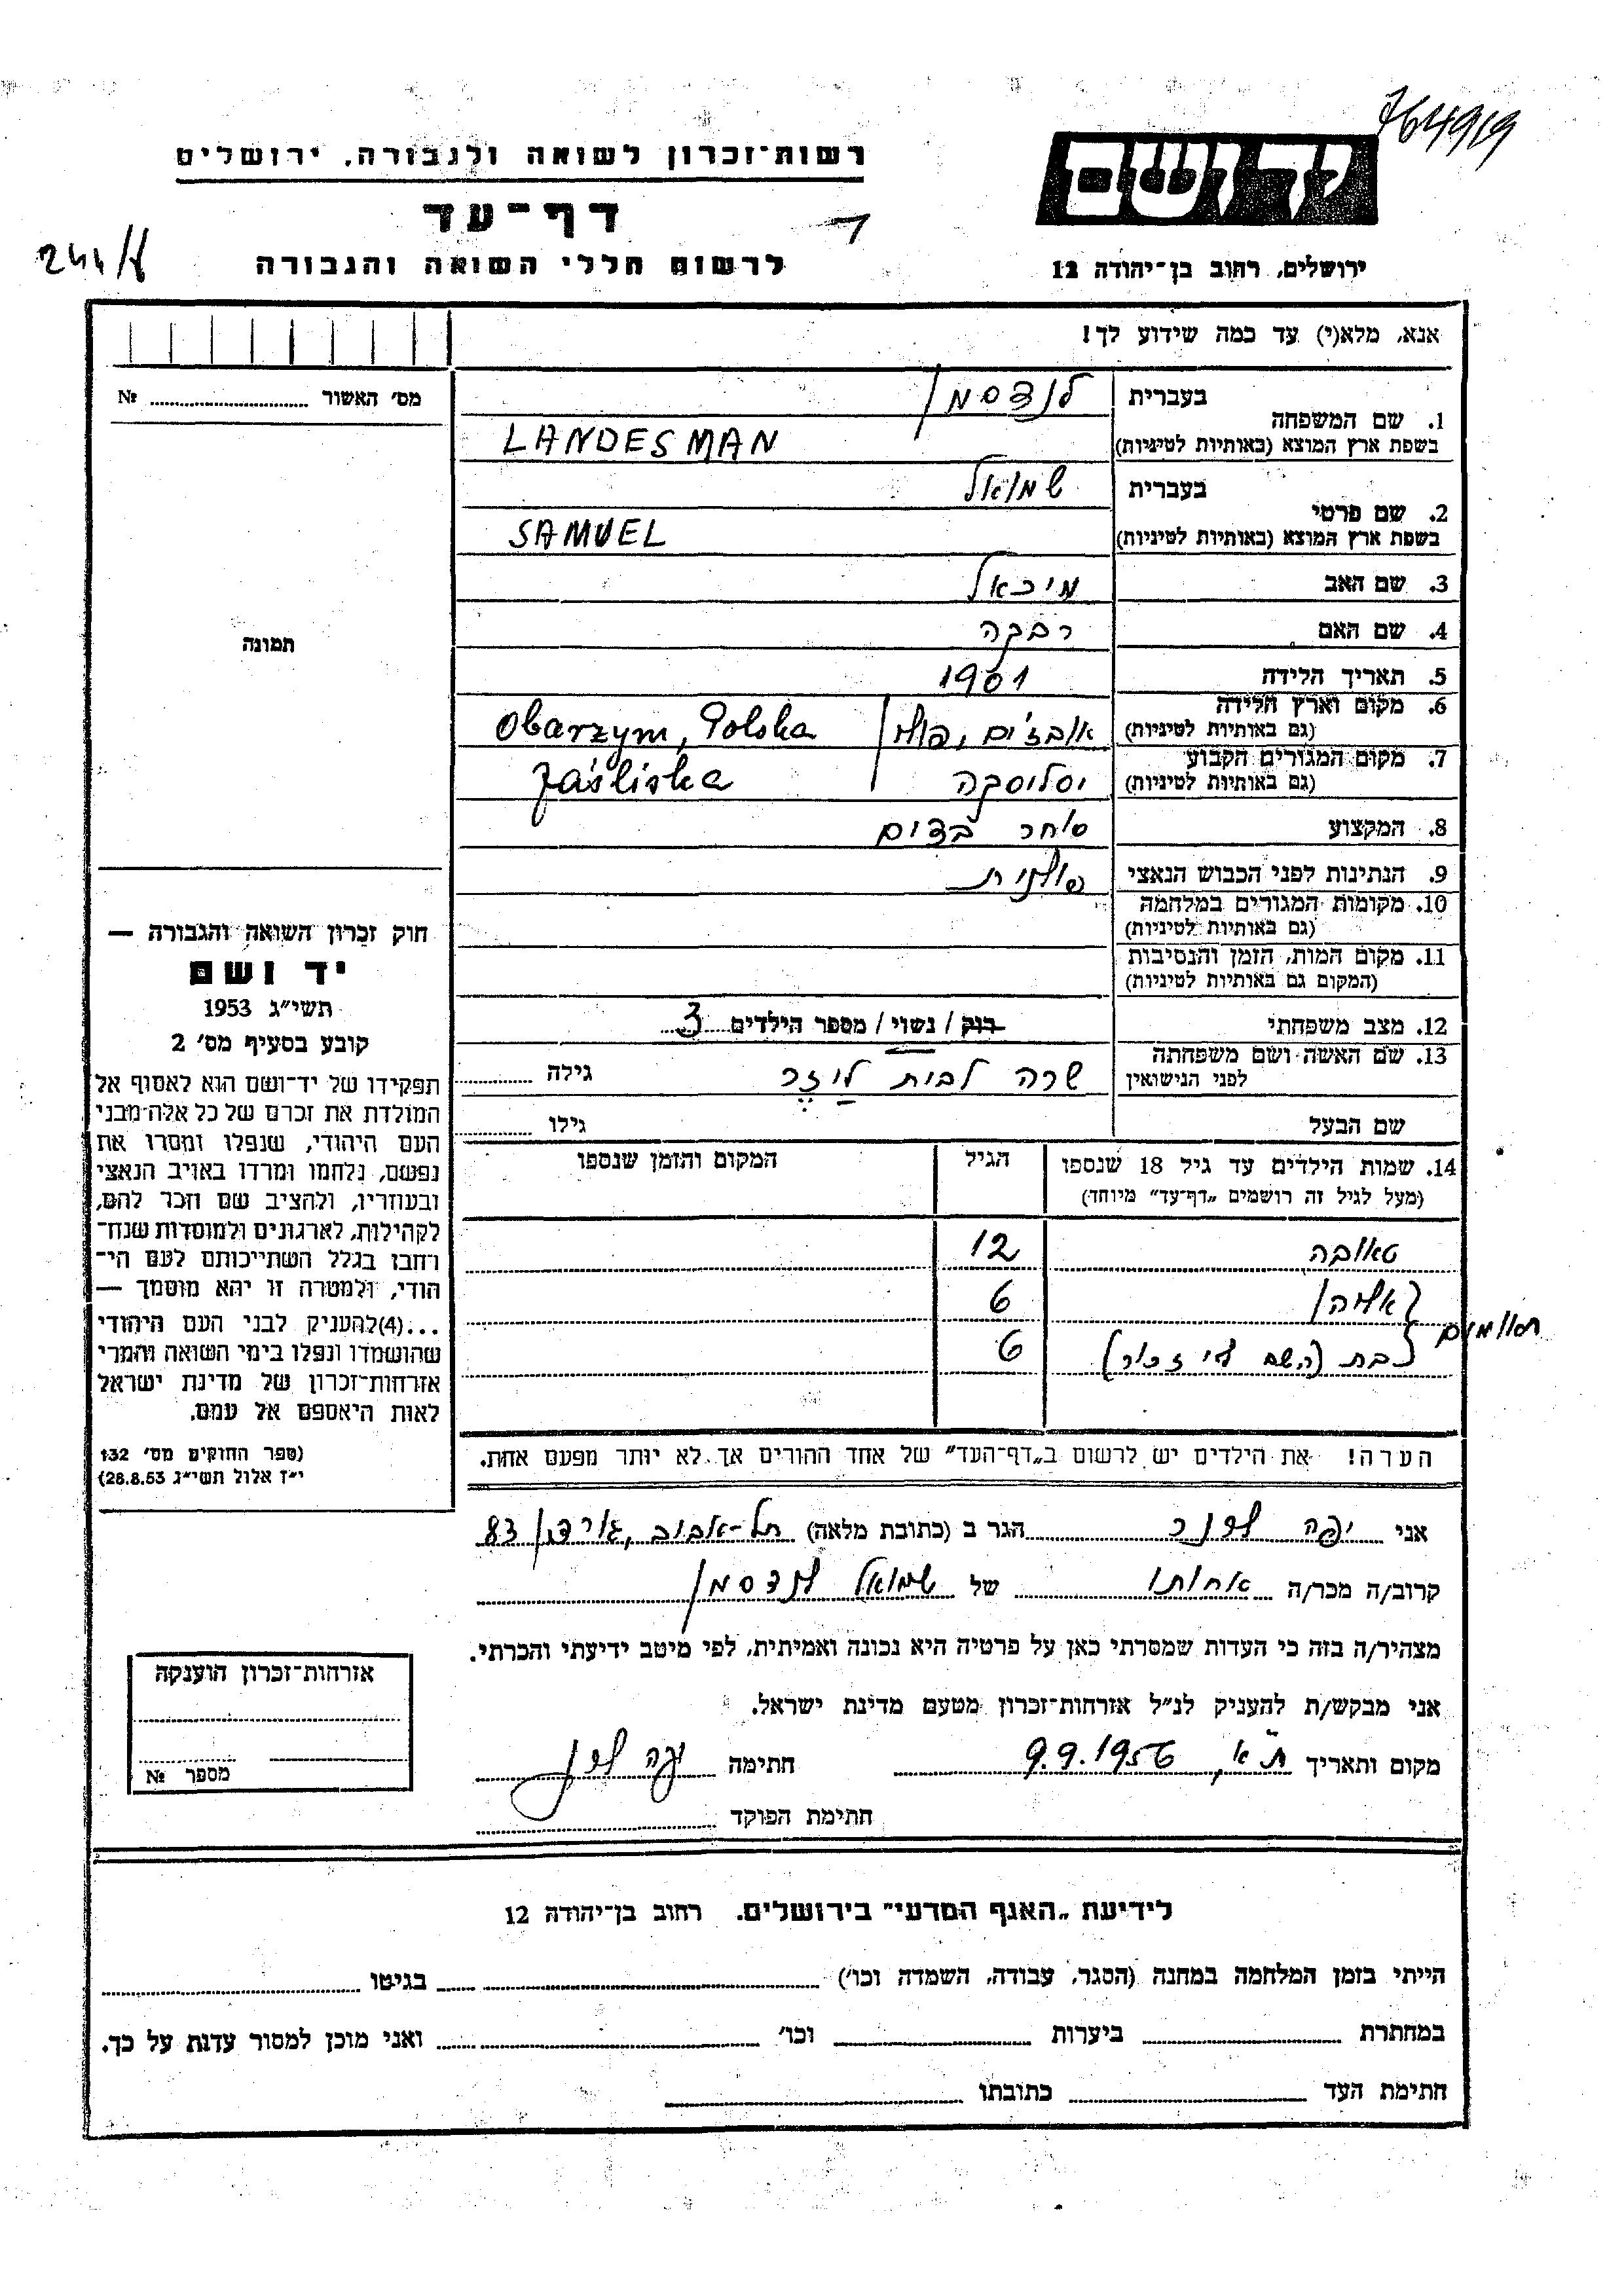 764919
רשות־זכרון לשואה ולגבורה, ירושלים
יד ושם
דף־עד
244/
לרשום חללי השואה והגבורה
ירושלים, רחוב בן־יהודה 12
אנא, מלא(י) עד כמה שידוע לך!
מס׳ האשור № 
1. שם המשפחה
בעברית לנדסמן
בשפת ארץ המוצא (באותיות לטיניות) LANDESMAN
2. שם פרטי
בעברית שמואל
בשפת ארץ המוצא (באותיות לטיניות) SAMUEL
3. שם האב מיכאל
4. שם האם רבקה
5. תאריך הלידה 1901
6. מקום וארץ הלידה
(גם באותיות לטיניות) Obarzym, Polska
7. מקום המגורים הקבוע
(גם באותיות לטיניות) יסליסקה Jaśliska
8. המקצוע סוחר בדים
9. הנתינות לפני הכבוש הנאצי פולנית
10. מקומות המגורים במלחמה
(גם באותיות לטיניות)
11. מקום המות, הזמן והנסיבות
(המקום גם באותיות לטיניות)
12. מצב משפחתי רוק / נשוי / מספר הילדים 3
13. שם האשה ושם משפחתה
לפני הנישואין שרה לבית ליזר גילה
שם הבעל גילו
14. שמות הילדים עד גיל 18 שנספו הגיל המקום והזמן שנספו
(מעל לגיל זה רושמים „דף־עד״ מיוחד)
טאובה 12
6
בת (השם לא זכור) 6
תאומים
הערה! את הילדים יש לרשום ב„דף־העד״ של אחד ההורים אך לא יותר מפעם אחת.
תמונה
חוק זכרון השואה והגבורה —
יד ושם
תשי״ג 1953
קובע בסעיף מס׳ 2
תפקידו של יד־ושם הוא לאסוף אל
המולדת את זכרם של כל אלה מבני
העם היהודי, שנפלו ומסרו את
נפשם, נלחמו ומרדו באויב הנאצי
ובעוזריו, ולהציב שם וזכר להם,
לקהילות, לארגונים ולמוסדות שנח־
רחבו בגלל השתייכותם לעם הי־
הודי, ולמטרה זו יהא מוסמך —
...(4)להעניק לבני העם היהודי
שהושמדו ונפלו בימי השואה והמרי
אזרחות־זכרון של מדינת ישראל
לאות היאספם אל עמם.
(ספר החוקים מס׳ 132
י״ז אלול תשי״ג 28.8.53)
אני יפה הגר ב (כתובת מלאה) תל-אביב, גורדון 83
קרוב/ה מכר/ה אחותו של שמואל לנדסמן
מצהיר/ה בזה כי העדות שמסרתי כאן על פרטיה היא נכונה ואמיתית, לפי מיטב ידיעתי והכרתי.
אני מבקש/ת להעניק לנ״ל אזרחות־זכרון מטעם מדינת ישראל.
מקום ותאריך ת״א, 9.9.1956 חתימה יפה
חתימת הפוקד
אזרחות־זכרון הוענקה
מספר №
לידיעת „האגף המדעי״ בירושלים, רחוב בן־יהודה 12
הייתי בזמן המלחמה במחנה (הסגר, עבודה, השמדה וכו׳) בגיטו
במחתרת ביערות וכו׳ ואני מוכן למסור עדות על כך.
חתימת העד כתובתו